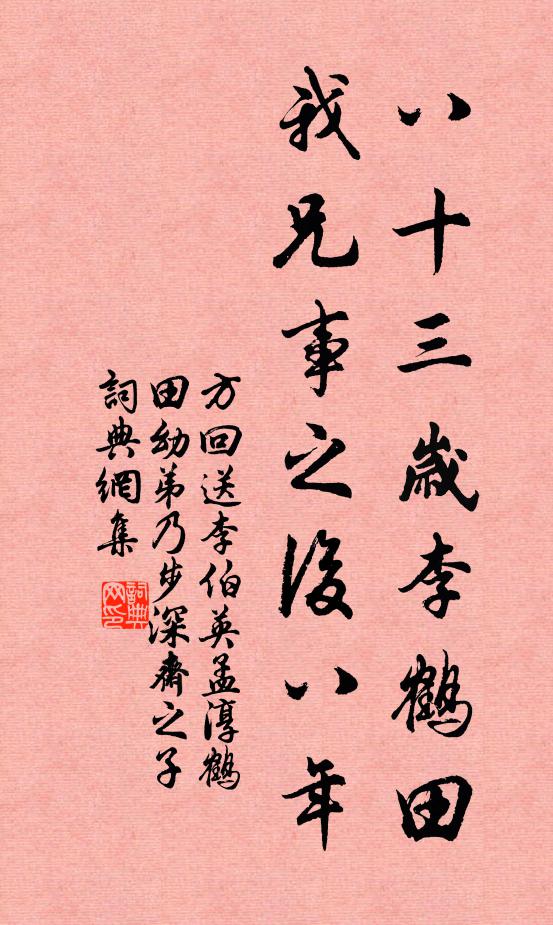 八十三歳李鶴田
我兄事之後八年
方回送李伯英孟淳鶴
田幼弟乃步深齋之子
詞典網集
詞典網印